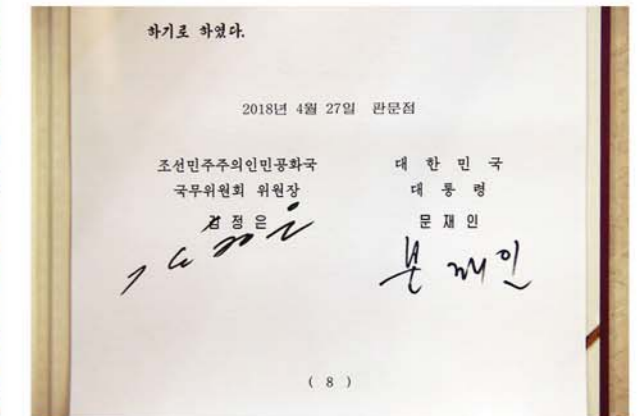 하기로 하였다.
2018년 4월 27일 판문점
조선민주주의인민공화국
국무위원회 위원장
김 정 은
대 한 민 국
대 통 령
문 재 인
김정은
문재인
( 8 )